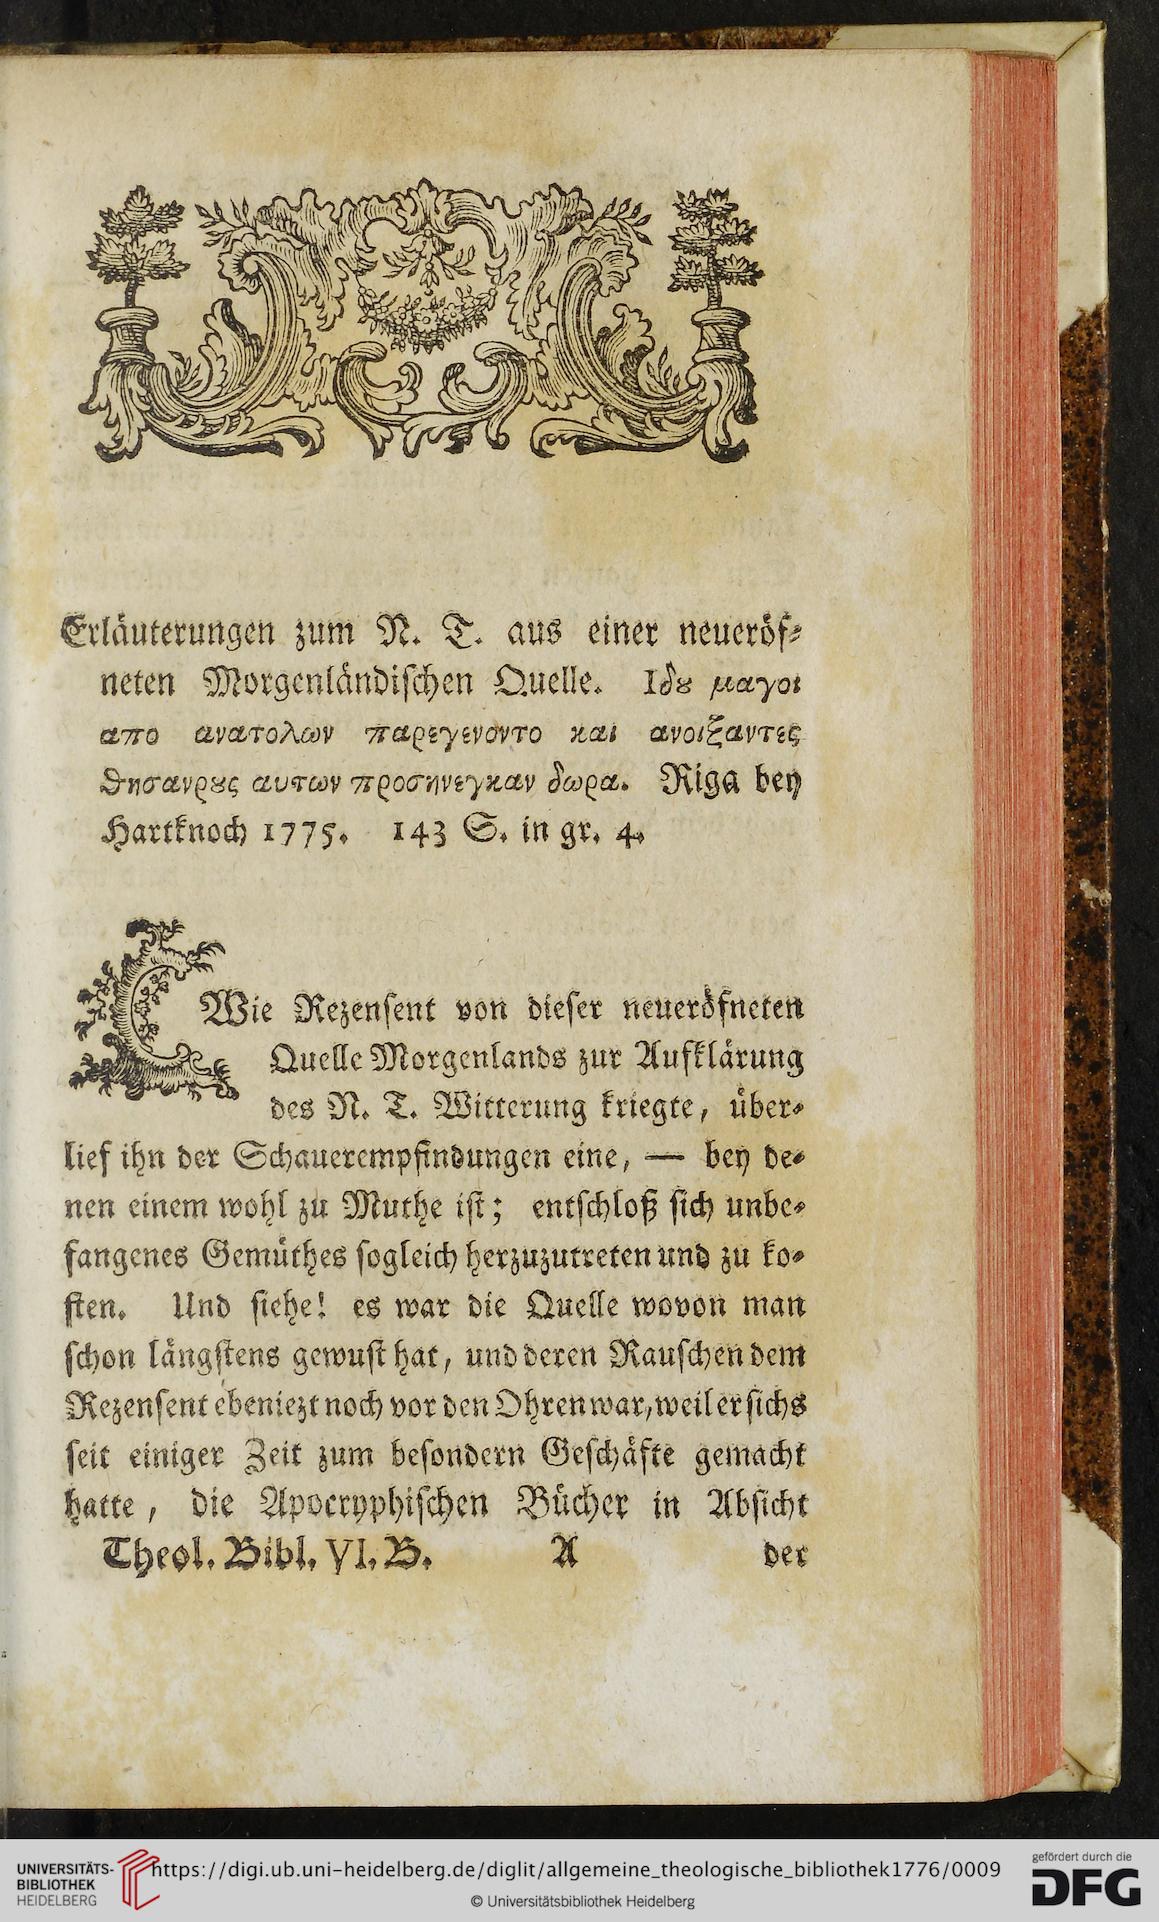 Erläuterungen zum N. T. aus einer neueröf⸗
neten Morgenländischen Quelle. Ιδȣ μαγοι
απο ανατολων παρεγενοντο και ανοιξαντες
θησανρȣς αυτων προσηνεγκαν δωρα. Riga bey
Hartknoch 1775. 143 S. in gr. 4.
Wie Rezensent von dieser neueröfneten
Quelle Morgenlands zur Aufklärung
des N. T. Witterung kriegte, über⸗
lief ihn der Schauerempfindungen eine, — bey de⸗
nen einem wohl zu Muthe ist; entschloß sich unbe⸗
fangenes Gemüthes sogleich herzuzutreten und zu ko⸗
sten. Und siehe! es war die Quelle wovon man
schon längstens gewust hat, und deren Rauschen dem
Rezensent ebeniezt noch vor den Ohren war, weil er sichs
seit einiger Zeit zum besondern Geschäfte gemacht
hatte, die Apocryphischen Bücher in Absicht
Theol. Bibl. VI. B. A der
UNIVERSITÄTS-
BIBLIOTHEK
HEIDELBERG
https://digi.ub.uni-heidelberg.de/diglit/allgemeine_theologische_bibliothek1776/0009
© Universitätsbibliothek Heidelberg
gefördert durch die
DFG